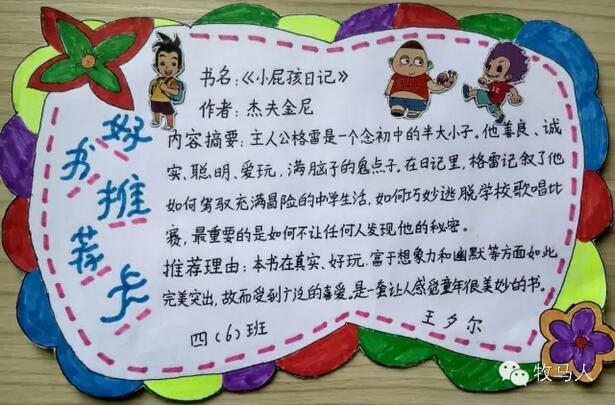 好书推荐卡
书名:《小屁孩日记》
作者:杰夫金尼
内容摘要:主人公格雷是一个念初中的半大小子。他善良、诚
实、聪明、爱玩,满脑子的鬼点子。在日记里,格雷记叙了他
如何驾驭充满冒险的中学生活,如何巧妙逃脱学校歌唱比
赛,最重要的是如何不让任何人发现他的秘密。
推荐理由:本书在真实、好玩、富于想象力和幽默等方面如此
完美突出,故而受到广泛的喜爱。是一套让人感觉童年很美妙的书。
四(6)班
王夕尔
牧马人